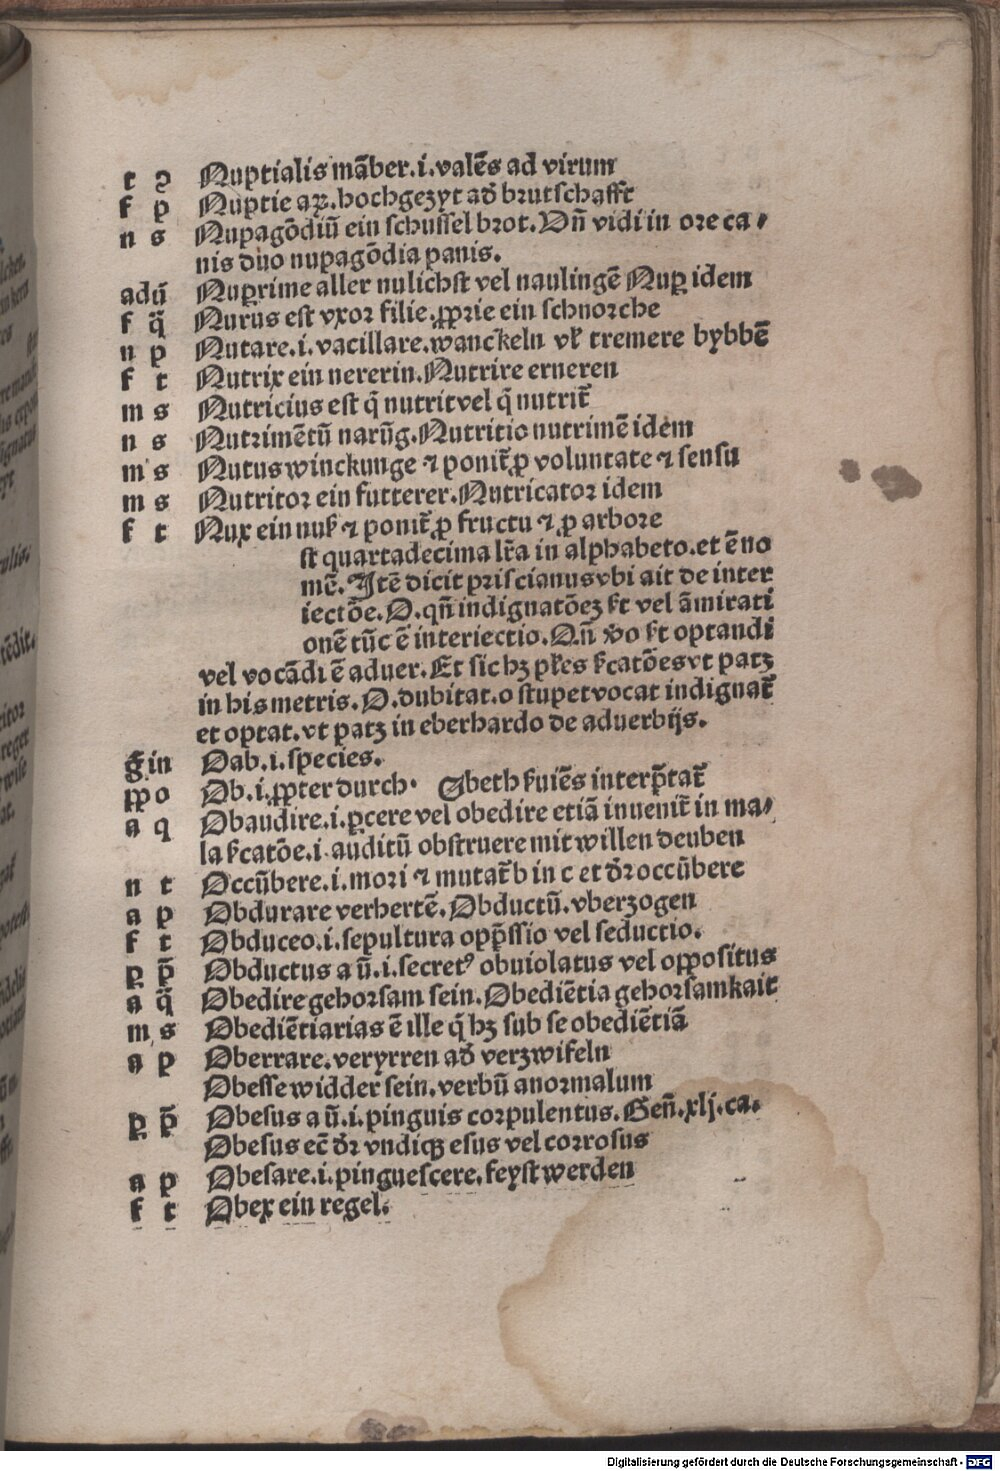 t ꝯ Nuptialis mãber.i.valẽs ad virum
f p Nuptie aꝝ.hochgezyt ad̕ brutschafft
n s Nupagõdiũ ein schussel brot.Dn̄ vidi in ore ca⸗
nis duo nupagõdia panis.
adũ Nuꝑrime aller nulichst vel naulingẽ Nuꝑ idem
f q̃ Nurus est vxor filie.ꝓprie ein schnorche
n p Nutare.i.vacillare.wanckeln vł tremere bybbẽ
f t Nutrix ein nererin.Nutrire erneren
m s Nutricius est q̃ nutrit vel q̃ nutrit᷑
n s Nutrimẽtũ narũg.Nutritio nutrimẽ idem
m s Nutus winckunge ⁊ ponit᷑ ꝓ voluntate ⁊ sensu
m s Nutritor ein futterer.Nutricator idem
f t Nux ein nuß ⁊ ponit᷑ ꝓ fructu ⁊ ꝓ arbore
st quartadecima lr̃a in alphabeto.et ẽ no
mẽ.Itẽ dicit priscianus vbi ait de inter
iectõe.O.qñ indignatõeꝫ ſt vel ãmirati
onẽ tũc ẽ interiectio.Qñ v̕o ſt optandi
vel vocãdi ẽ aduer.Et sic hꝫ płes ſcatões vt patꝫ
in his metris.O.dubitat.o stupet vocat indignat᷑
et optat.vt patꝫ in eberhardo de aduerbijs.
g̃ in Oab.i.species.
ꝓpo Ob.i.ꝓpter durch. Obeth ſuiẽs interp̃tat᷑
a q Obaudire.i.ꝑcere vel obedire etiã inuenit᷑ in ma⸗
la ſcatõe.i.auditũ obstruere mit willen deuben
n t Occũbere.i.mori ⁊ mutat᷑ b in c et dr̃ occũbere
a p Obdurare verhertẽ.Obductũ.vberzogen
f t Obduceo.i.sepultura opp̃ssio vel seductio.
ꝑ p̃ Obductus a ũ.i.secretꝰ obuiolatus vel oppositus
a q̃ Obedire gehorsam sein.Obediẽtia gehorsamkait
m s Obediẽtiarias ẽ ille q̃ hꝫ sub se obediẽtiã
a p Oberrare.veryrren ad̕ verzwifeln
Obesse widder sein.verbũ anormalum
ꝑ p̃ Obesus a ũ.i.pinguis corpulentus.Geñ.xlj.ca.
Obesus ec̃ dr̃ vndiqꝫ esus vel corrosus
a p Obesare.i.pinguescere.feyst werden
f t Obex ein regel.
Digitalisierung gefördert durch die Deutsche Forschungsgemeinschaft - DFG